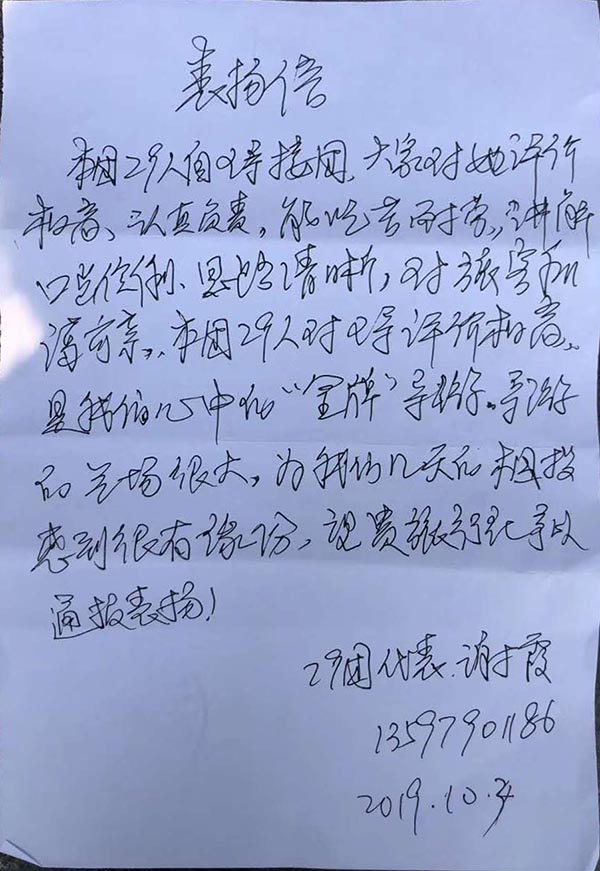 表扬信
本团29人自×导接团,大家对她评价
极高、认真负责,能吃苦耐劳,讲解
口齿伶俐、思路清晰,对旅客和
蔼可亲,本团29人对×导评价极高。
是我们心中的“金牌”导游。导游
的气场很大,为我们几天的相
感到很有缘份,望贵旅行社予以
通报表扬!
29团代表.谢
13597901186
2019.10.